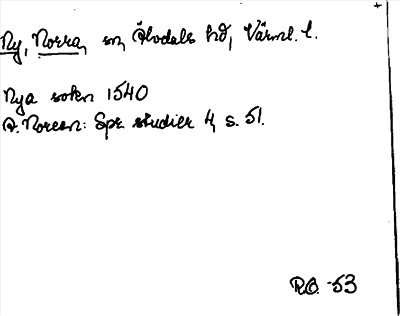 Ny, Norra, sn, Älvdals hd, Värml. l.
Nya sokn 1540
A. Noreen: Spr. studier 4, s. 51.
R.O. -53